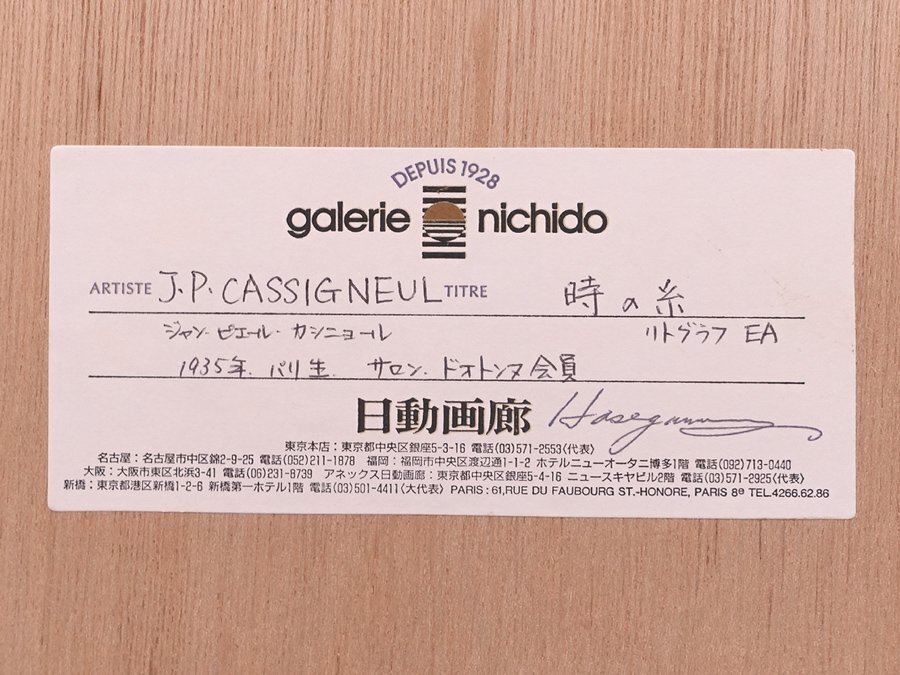 DEPUIS 1928
galerie nichido
ARTISTE J.P. CASSIGNEUL TITRE 時の糸
ジャン・ピエール・カシニョール リトグラフ EA
1935年 パリ生 サロン・ドオトンヌ会員
日動画廊 Hasegawa
東京本店:東京都中央区銀座5-3-16 電話(03)571-2553(代表)
名古屋:名古屋市中区錦2-9-25 電話(052)211-1878 福岡:福岡市中央区渡辺通1-1-2 ホテルニューオータニ博多1階 電話(092)713-0440
大阪:大阪市東区北浜3-41 電話(06)231-8739 アネックス日動画廊:東京都中央区銀座5-4-16 ニュースキヤビル2階 電話(03)571-2925(代表)
新橋:東京都港区新橋1-2-6 新橋第一ホテル1階 電話(03)501-4411(大代表) PARIS:61,RUE DU FAUBOURG ST.-HONORE, PARIS 8e TEL.4266.62.86